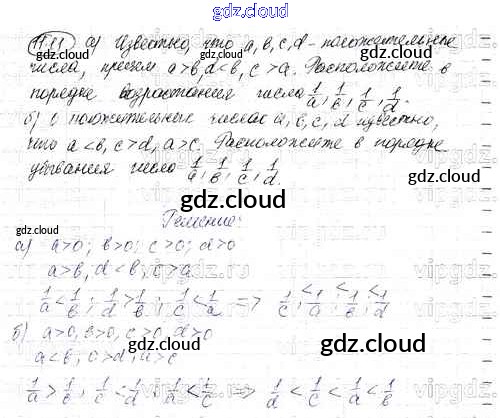 gdz.cloud
gdz.cloud
11.11 а) Известно, что a, b, c, d - положительные
числа, причем a > b, d < b, c > a. Расположите в
порядке возрастания числа 1/a, 1/b, 1/c, 1/d.
б) О положительных числах a, b, c, d известно,
что a < b, c > d, a > c. Расположите в порядке
убывания числа 1/a, 1/b, 1/c, 1/d.
gdz.cloud
gdz.cloud
Решение:
gdz.cloud
а) a>0; b>0; c>0; d>0
a>b, d<b, c>a
1/a < 1/b; 1/d > 1/b; 1/c < 1/a => 1/c < 1/a < 1/b < 1/d
б) a>0, b>0, c>0, d>0
gdz.cloud
a<b, c>d, a>c
1/a > 1/b, 1/c < 1/d, 1/a < 1/c => 1/d < 1/c < 1/a < 1/b
gdz.cloud